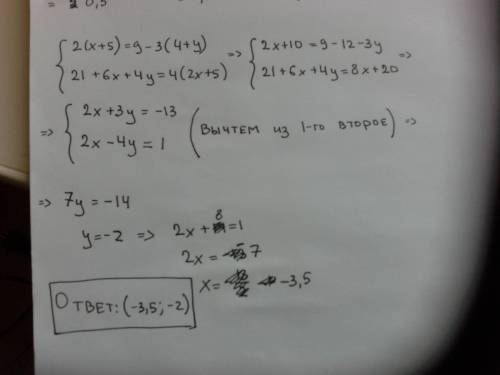 = 0,5
{ 2(x+5)=9-3(4+y) => { 2x+10=9-12-3y =>
21+6x+4y=4(2x+5) 21+6x+4y=8x+20
=> { 2x+3y=-13
2x-4y=1 (ВЫЧТЕМ ИЗ 1-ГО ВТОРОЕ) =>
=> 7y=-14
y=-2 => 2x+8=1
2x=-7
x= -3,5
ОТВЕТ: (-3,5; -2)